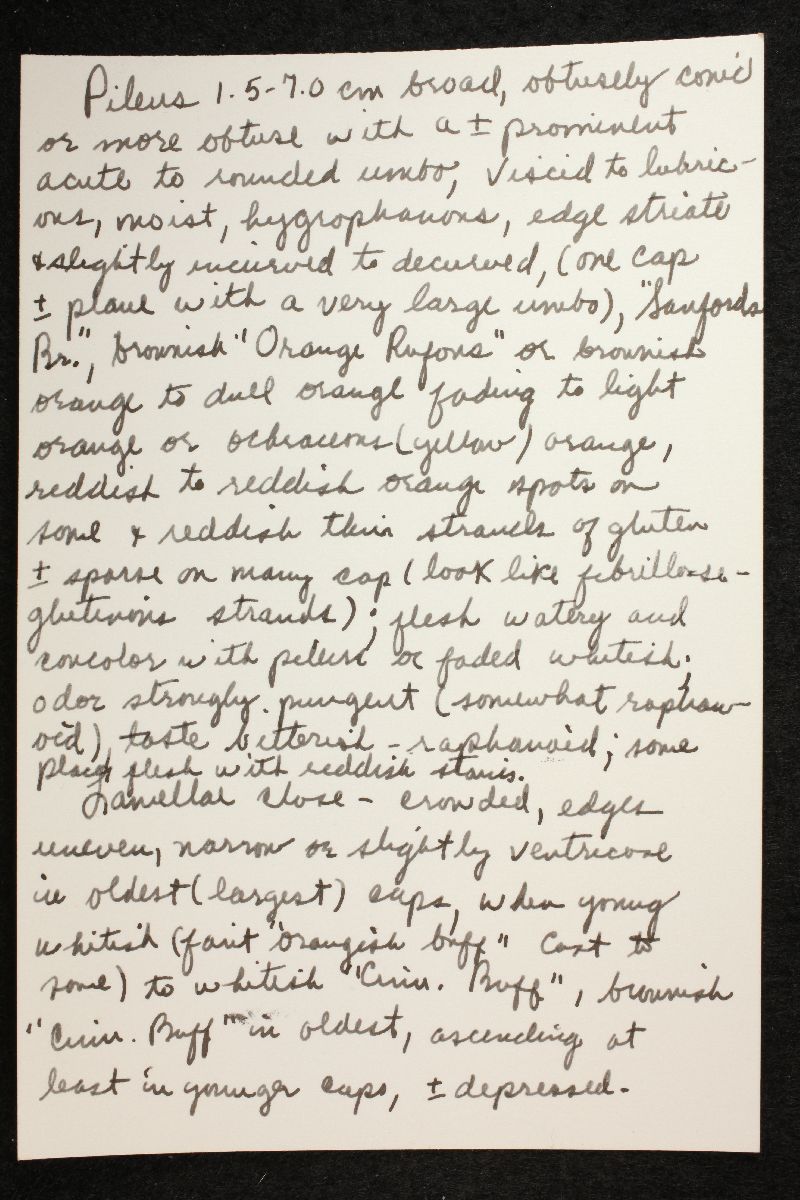 Pileus 1.5-7.0 cm broad, obtusely conic
or more obtuse with a ± prominent
acute to rounded umbo, viscid to lubric-
ous, moist, hygrophanous, edge striate
& slightly incurved to decurved, (one cap
± plane with a very large umbo), "Sanfords
Br.", brownish "Orange Rufous" or brownish
orange to dull orange fading to light
orange or ochraceous (yellow) orange,
reddish to reddish orange spots on
some & reddish thin strands of gluten
± sparse on many cap (look like fibrillose-
glutinous strands); flesh watery and
concolor with pileus or faded whitish;
odor strongly pungent (somewhat raphan-
oid), taste bitterish - raphanoid; some
flesh with reddish stains.
Lamellae close - crowded, edges
uneven, narrow or slightly ventricose
in oldest (largest) caps, when young
whitish (faint "orangish buff" cast to
some) to whitish "Cinn. Buff", brownish
"Cinn. Buff" in oldest, ascending at
least in younger caps, ± depressed.